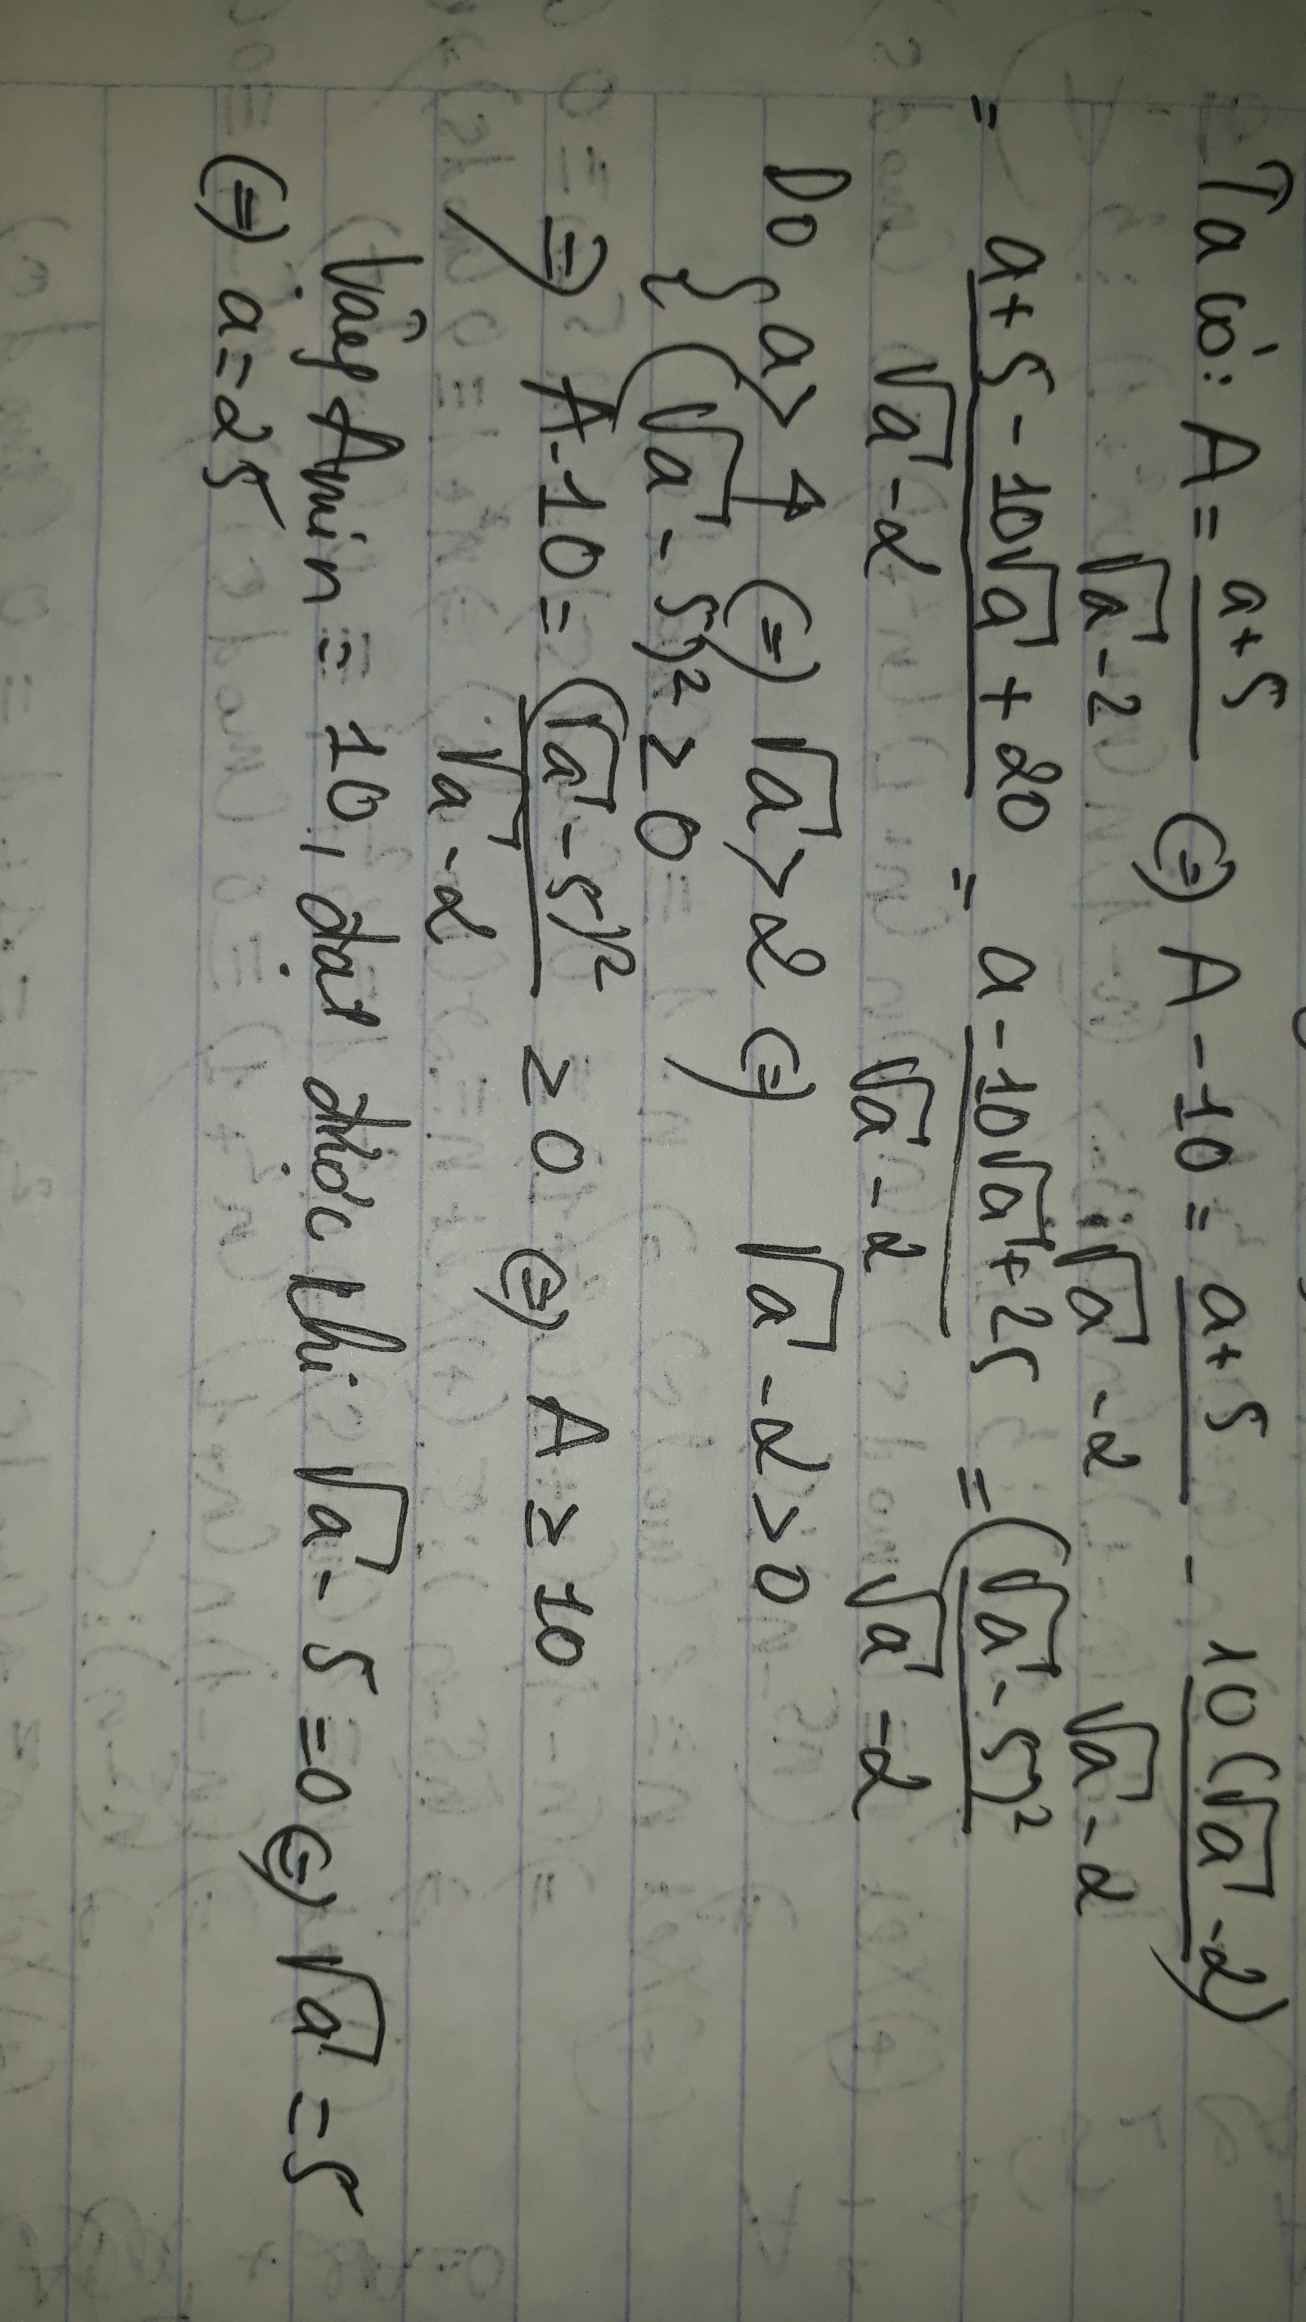 Ta có: A = (a+5)/(√a - 2) (=) A - 10 = (a+5)/(√a - 2) - 10(√a - 2)/(√a - 2)
= (a + 5 - 10√a + 20)/(√a - 2) = (a - 10√a + 25)/(√a - 2) = (√a - 5)²/(√a - 2)
Do { a > 4 (=) √a > 2 (=) √a - 2 > 0
(√a - 5)² ≥ 0
=) A - 10 = (√a - 5)²/(√a - 2) ≥ 0 (=) A ≥ 10
Vậy Amin = 10, đạt được khi √a - 5 = 0 (=) √a = 5
(=) a = 25